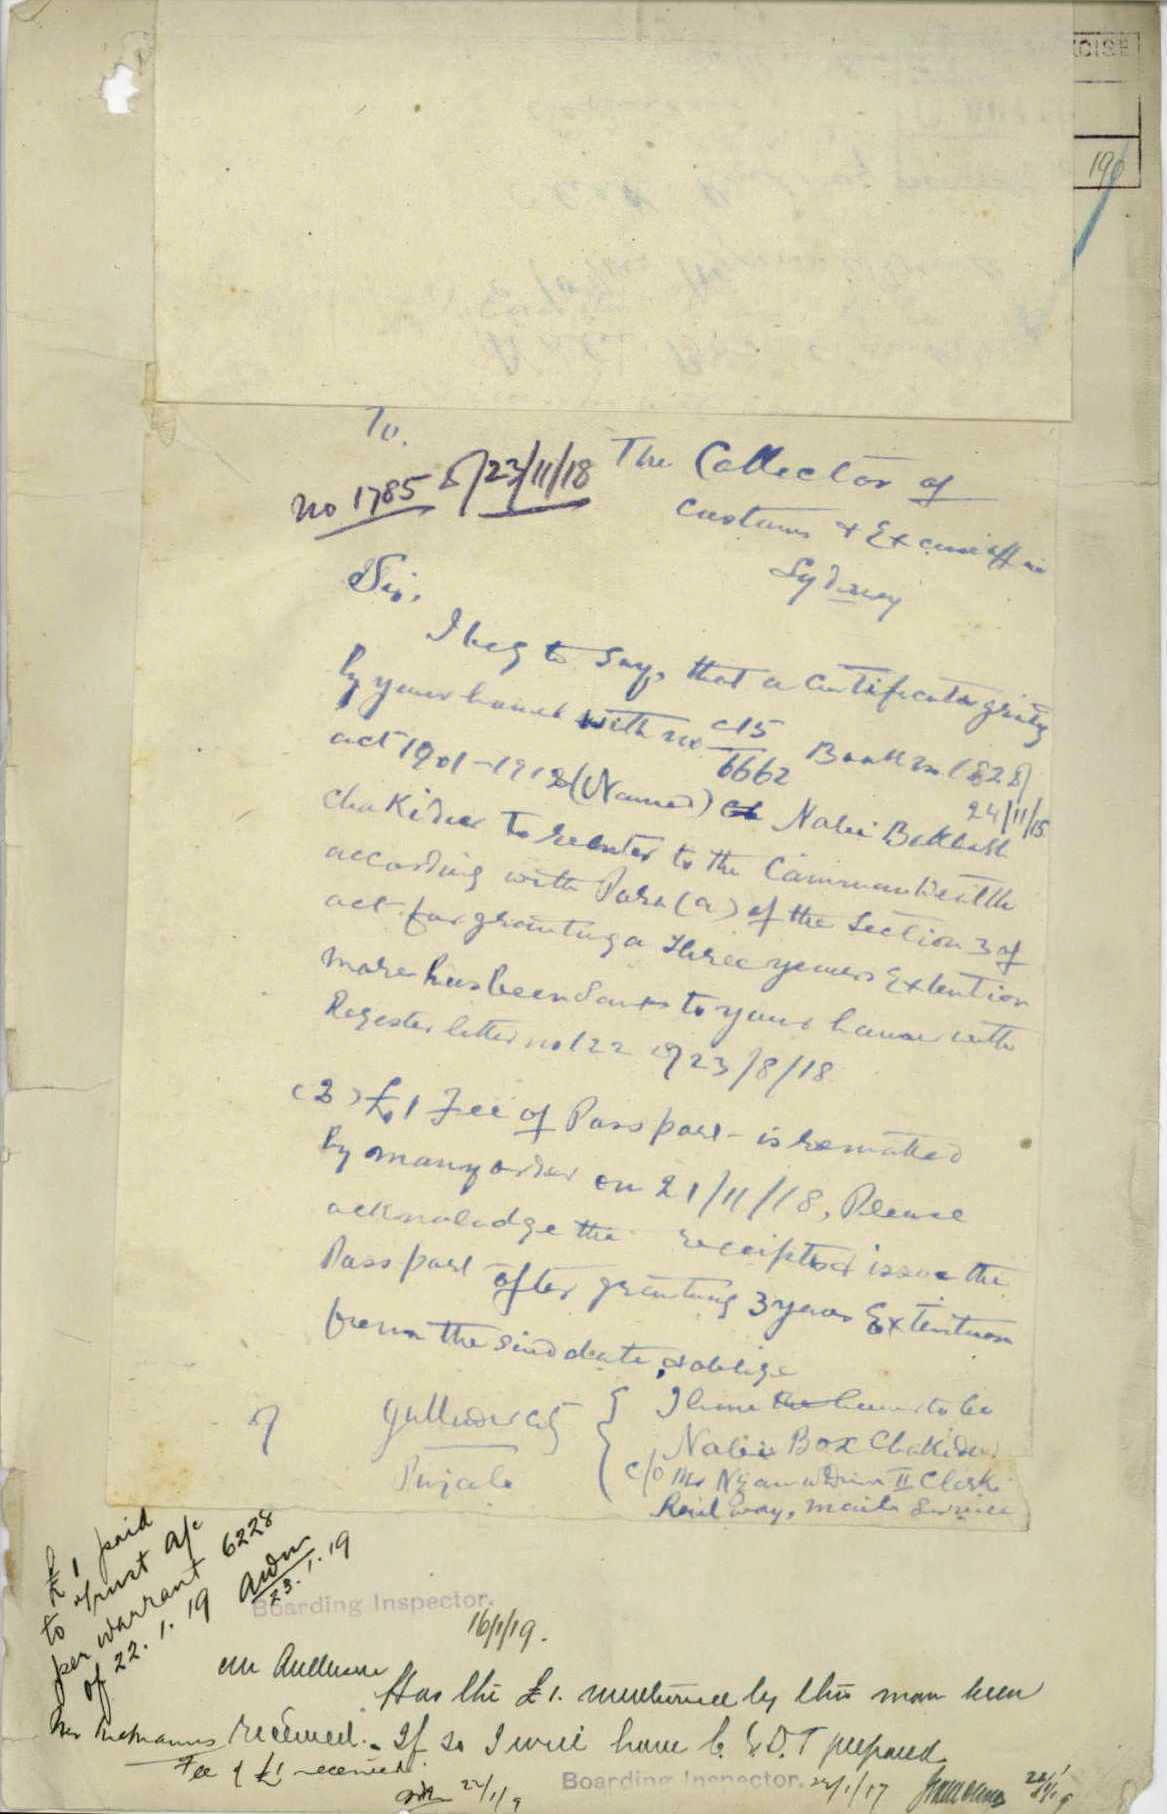 XCISE
190
To.
No 1785 of 23/11/18
The Collector of
Customs & Excise office
Sydney
Sir,
I beg to say, that a certificate
by your honour with no C15/6662 Book no (828)
24/11/15
act 1901-1912 (Named) Nabi Bakhsh
Chakidar to reenter to the Commonwealth
according with Para (a) of the Section 3 of
act for granting a three years Extention
more has been sent to your honour with
Regester letter no 122 of 23/8/18
(2) £1 Fee of Passport is remitted
by many order on 21/11/18, Please
acknoledge the receipt & issue the
Passport after granting 3 years Extention
from the said date, & oblige
I have the honour to be
Nabi Box Chakidar
of Jullundur City
Punjab
c/o Mr II Clerk
Railway, Mail Service
£1 paid
to Trust a/c
per warrant 6228
of 22.1.19
23.1.19
Boarding Inspector.
16/1/19.
Mr
Has the £1. mentioned by this man been
received. If so I will have C.E.D.T prepared
Fee of £1 received
22/1/9
Boarding Inspector.